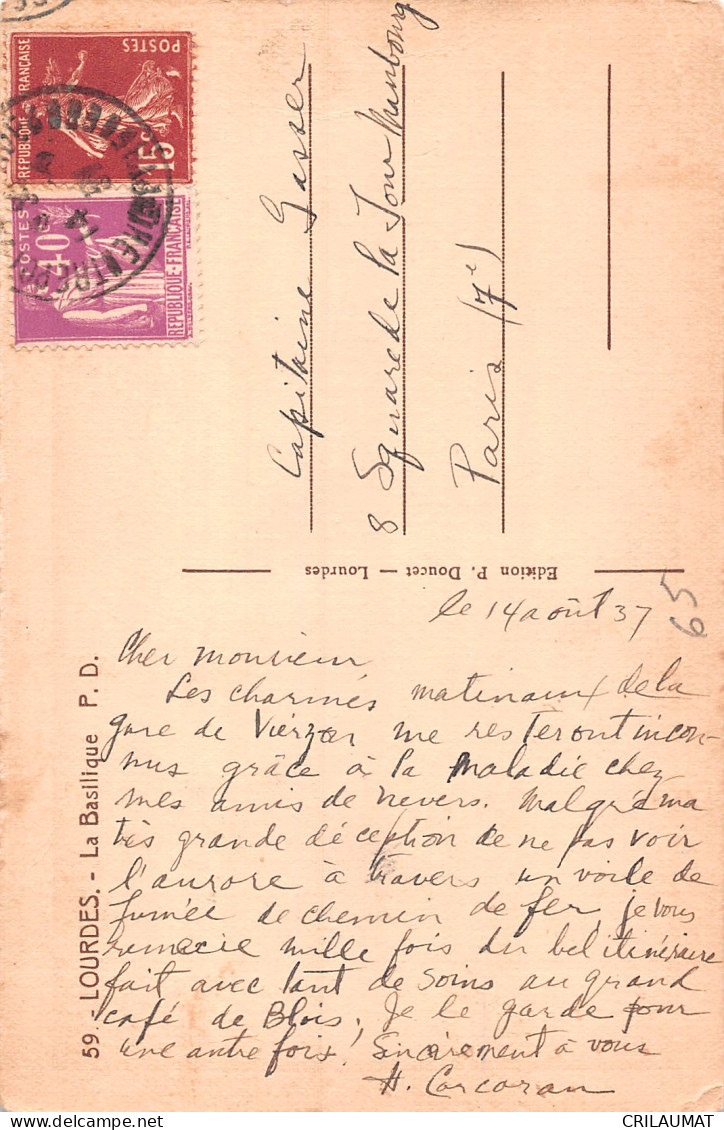 59. - LOURDES. - La Basilique P. D.
le 14 août 37
Cher monsieur
Les charmes matinaux de la
gare de Vierzon me resteront incon-
nus grâce à la maladie chez
mes amis de nevers. Malgré ma
très grande déception de ne pas voir
l'aurore à travers un voile de
fumée de chemin de fer, je vous
remercie mille fois du bel itinéraire
fait avec tant de soins au grand
café de Blois. Je le garde pour
une autre fois! Sincèrement à vous
H. Corcoran
65
Edition P. Doucet — Lourdes
Capitaine Gasser
8 Square de la Tour Maubourg
Paris (7e)
POSTES
REPUBLIQUE FRANÇAISE
15c
POSTES
40c
REPUBLIQUE-FRANÇAISE
CRILAUMAT